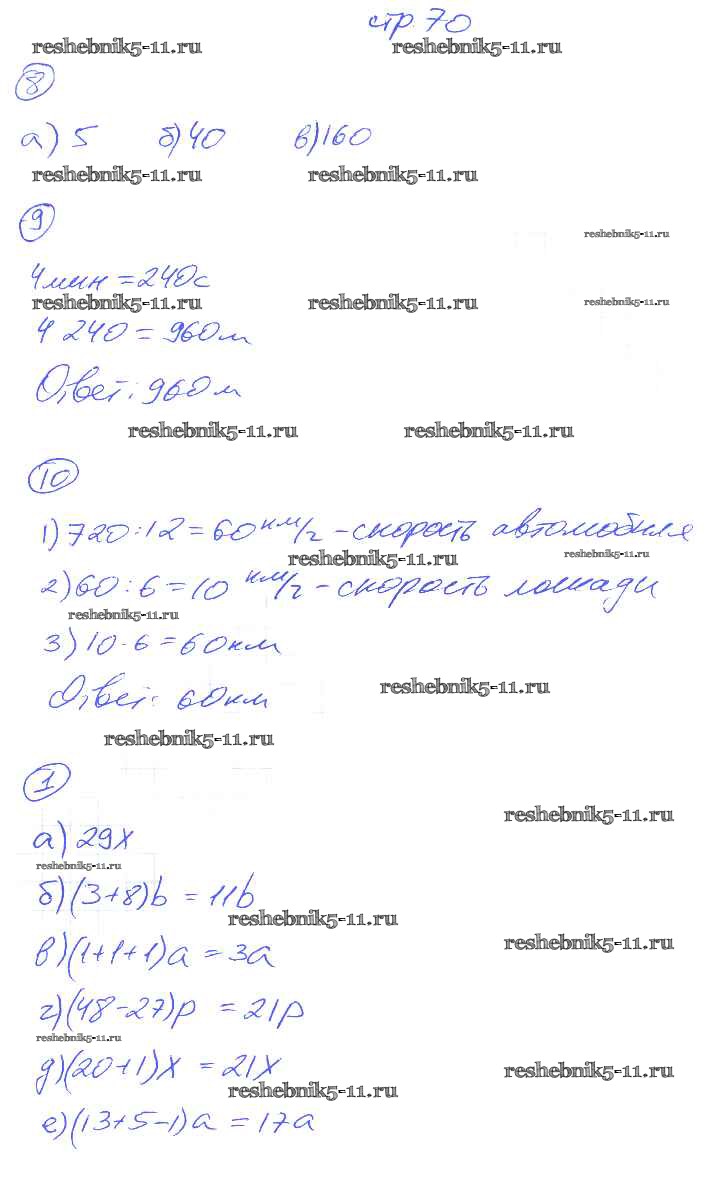 стр. 70
reshebnik5-11.ru reshebnik5-11.ru
8
а) 5 б) 40 в) 160
reshebnik5-11.ru reshebnik5-11.ru
9
reshebnik5-11.ru
4 мин = 240 с
reshebnik5-11.ru reshebnik5-11.ru reshebnik5-11.ru
4 240 = 960 м
Ответ: 960 м
reshebnik5-11.ru reshebnik5-11.ru
10
1) 720 : 12 = 60 км/ч - скорость автомобиля
reshebnik5-11.ru reshebnik5-11.ru
2) 60 : 6 = 10 км/ч - скорость лошади
reshebnik5-11.ru
3) 10 · 6 = 60 км
Ответ: 60 км
reshebnik5-11.ru
reshebnik5-11.ru
1
reshebnik5-11.ru
а) 29x
reshebnik5-11.ru
б) (3+8)b = 11b
reshebnik5-11.ru
в) (1+1+1)a = 3a
reshebnik5-11.ru
г) (48-27)p = 21p
reshebnik5-11.ru
д) (20+1)x = 21x
reshebnik5-11.ru
reshebnik5-11.ru
е) (13+5-1)a = 17a